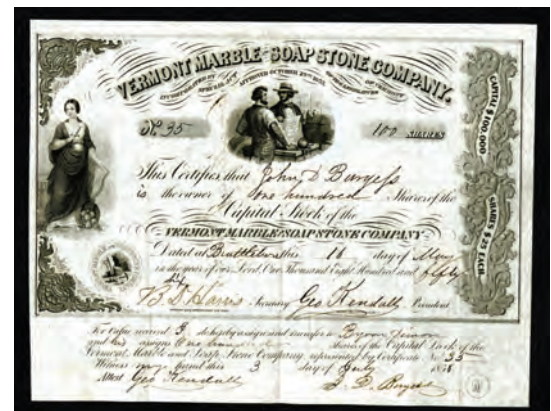 VERMONT MARBLE AND SOAP STONE COMPANY.
INCORPORATED BY SPECIAL ACT APPROVED OCTOBER
OF VERMONT
No. 35
100 SHARES
CAPITAL $100,000
SHARES $25 EACH
This Certifies that John D Burgess
is the owner of One hundred Shares of the
Capital Stock of the
VERMONT MARBLE AND SOAP STONE COMPANY
Dated at Brattleboro this 16 day of May
in the year of our Lord, One Thousand Eight Hundred and fifty
B. D. Harris Secretary Geo Kendall President
For Value received I do hereby assign and transfer to
and his assigns One hundred Shares of the Capital Stock of the
Vermont Marble and Soap Stone Company, represented by Certificate No 35
Witness my hand this 3 day of July
Attest Geo Kendall J. D. Burgess